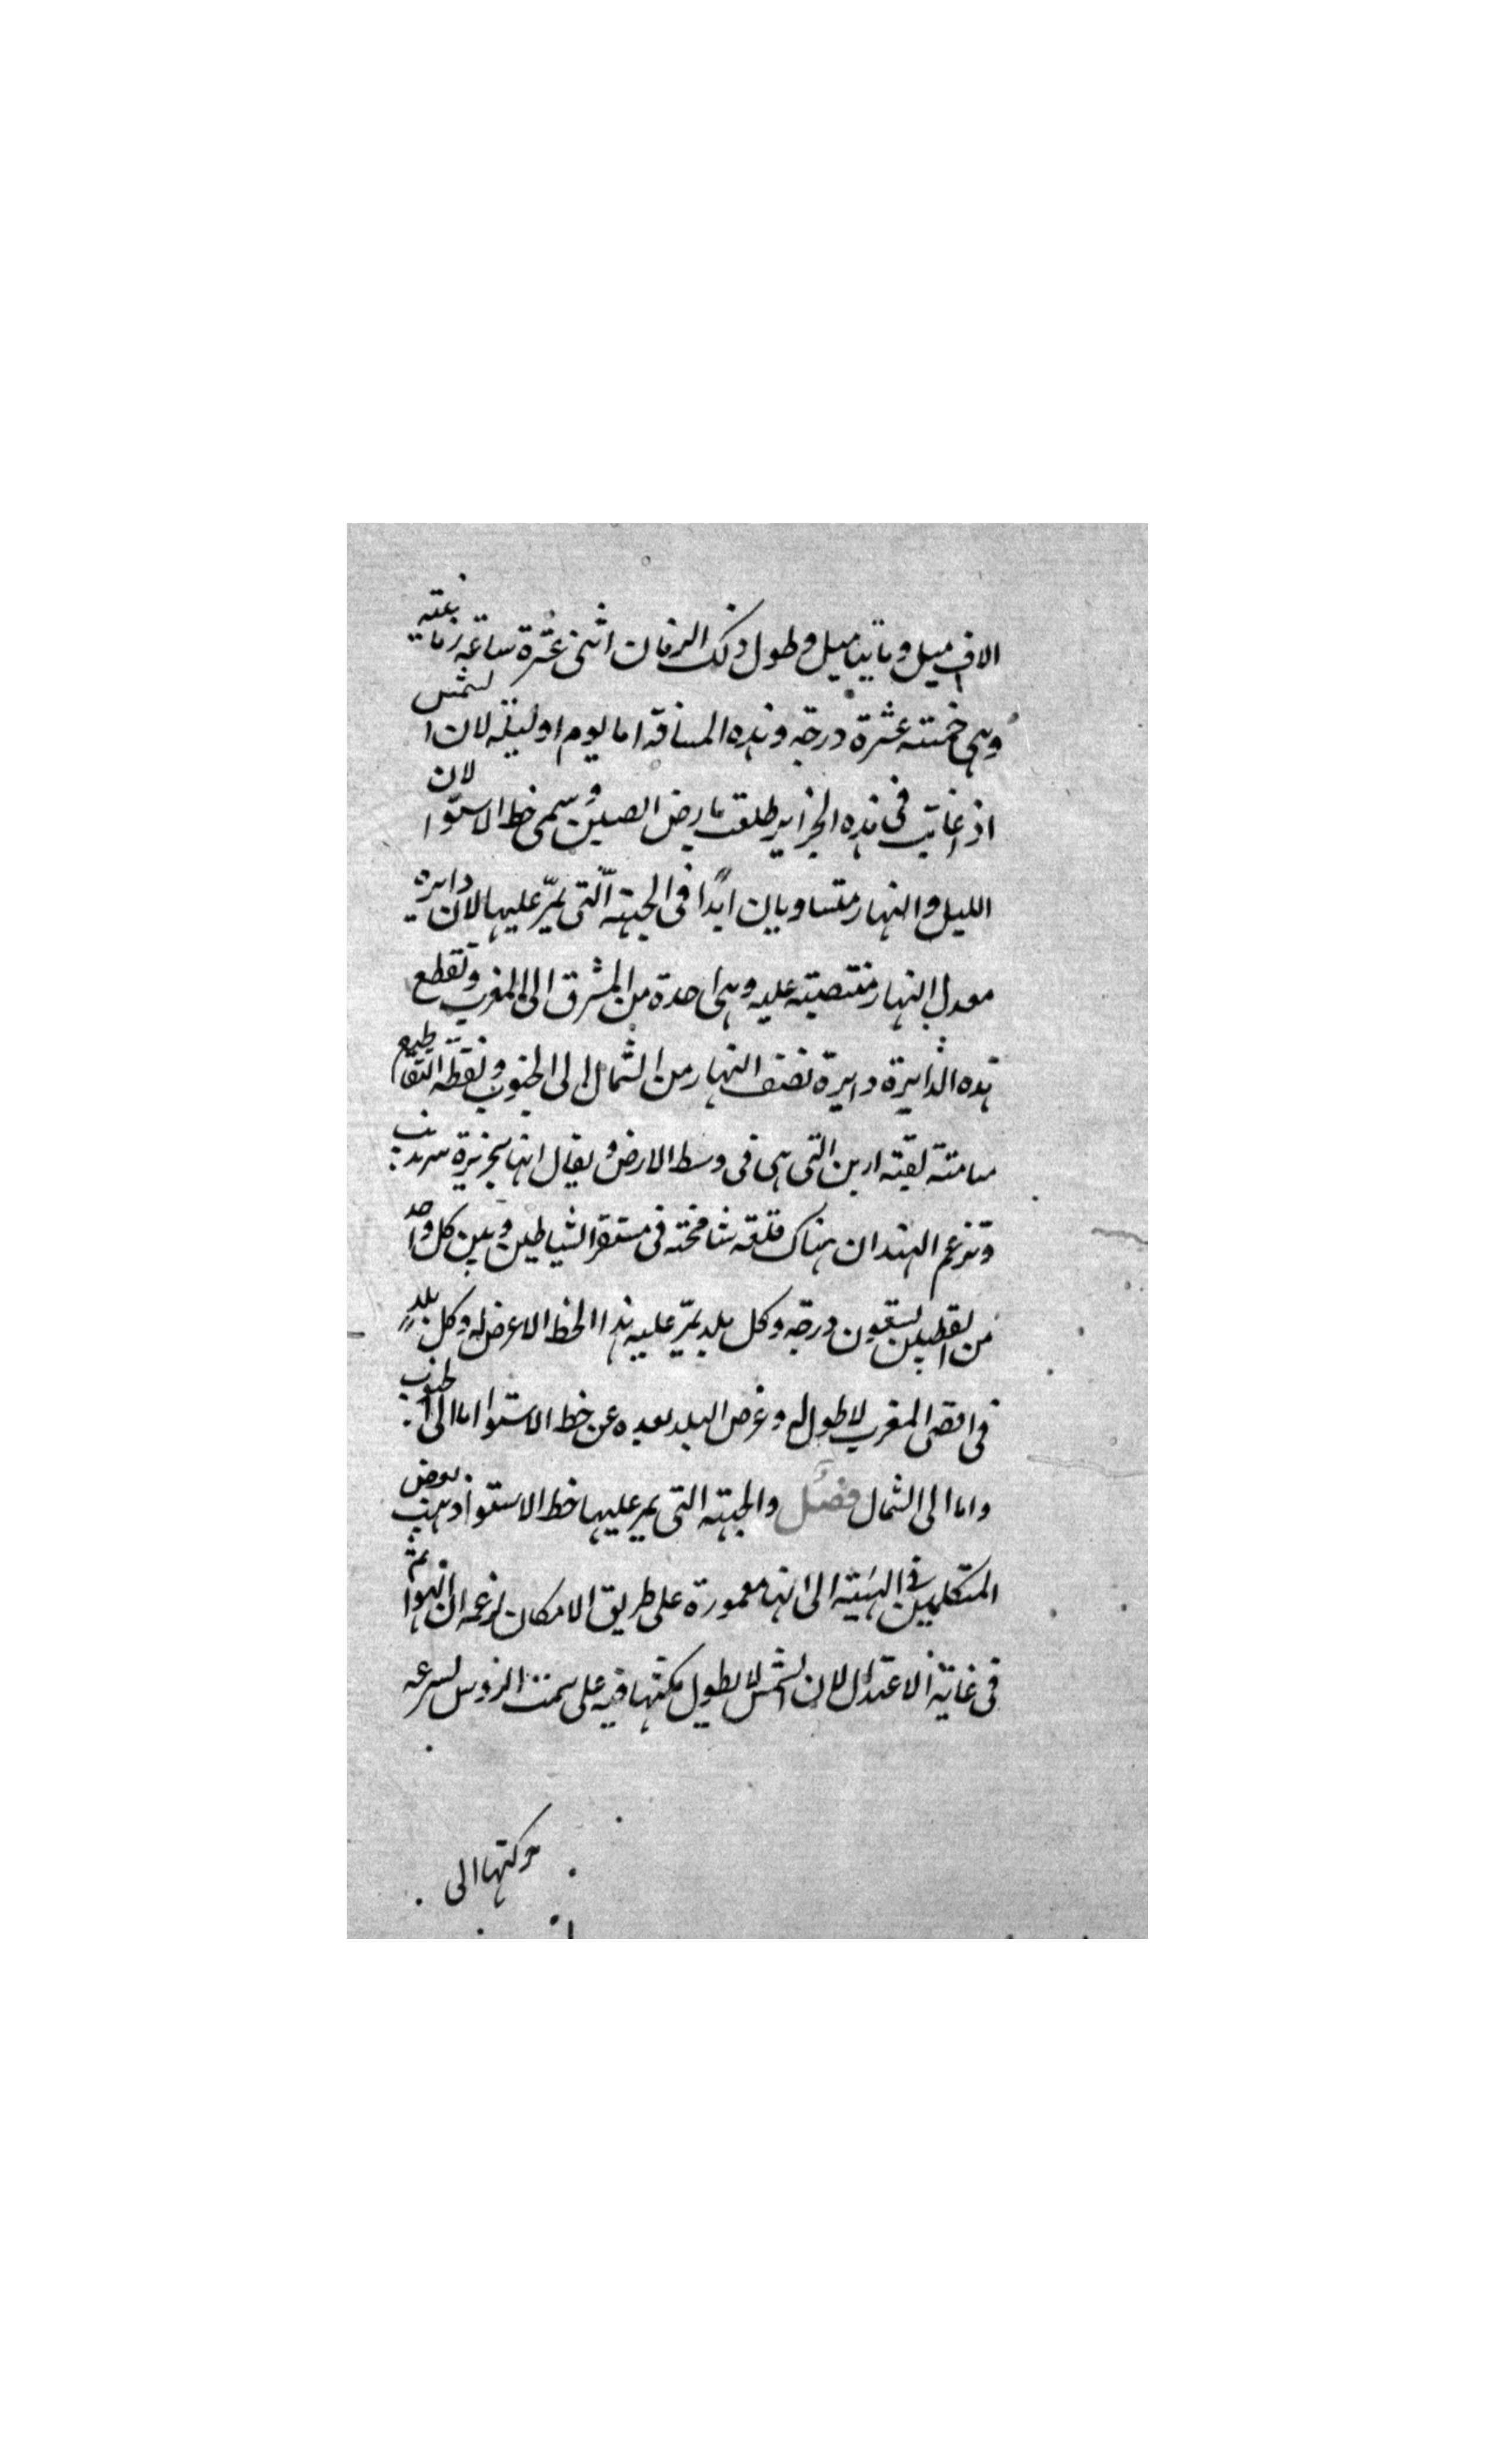 الاف ميل وماتينا ميل وطول ذلك الزمان اثنى عشرة ساعه زمانية
وهى خمسة عشرة درجه وهذه المسافة اما يوم او ليلة لان الشمس
اذ اغابت فى هذه الجزاير طلعت بارض الصين وسمى خط الاستوا لان
الليل والنهار متساويان ابدا فى الجهة التى يمر عليها لان دايره
معدل النهار منتصبة عليه وهى احدة من المشرق الى المغرب وتقطع
هذه الدايرة دايرة نصف النهار من الشمال الى الجنوب ونقطه التقاطيع
مسامتة لقبة ارين التى هى فى وسط الارض ويقال انها بجزيرة سرنديب
وتزعم الهند ان هناك قلعه شامخة فى مستقر الشياطين وبين كل واحد
من القطبين تسعون درجه وكل بلد يمر عليه هذا الخط الاعرض له وكل بلد
فى اقصى المغرب لا طول له وعرض البلد بعده عن خط الاستوا اما الى الجنوب
واما الى الشمال فصل والجهة التى يمر عليها خط الاستوا ذهب بعض
المتكلمين فى الهيئة الى انها معمورة على طريق الامكان لزعمه ان الهوا ثم
فى غاية الاعتدال لان الشمس لا يطول مكثها فيه على سمت الروس لسرعه
حركتها الى